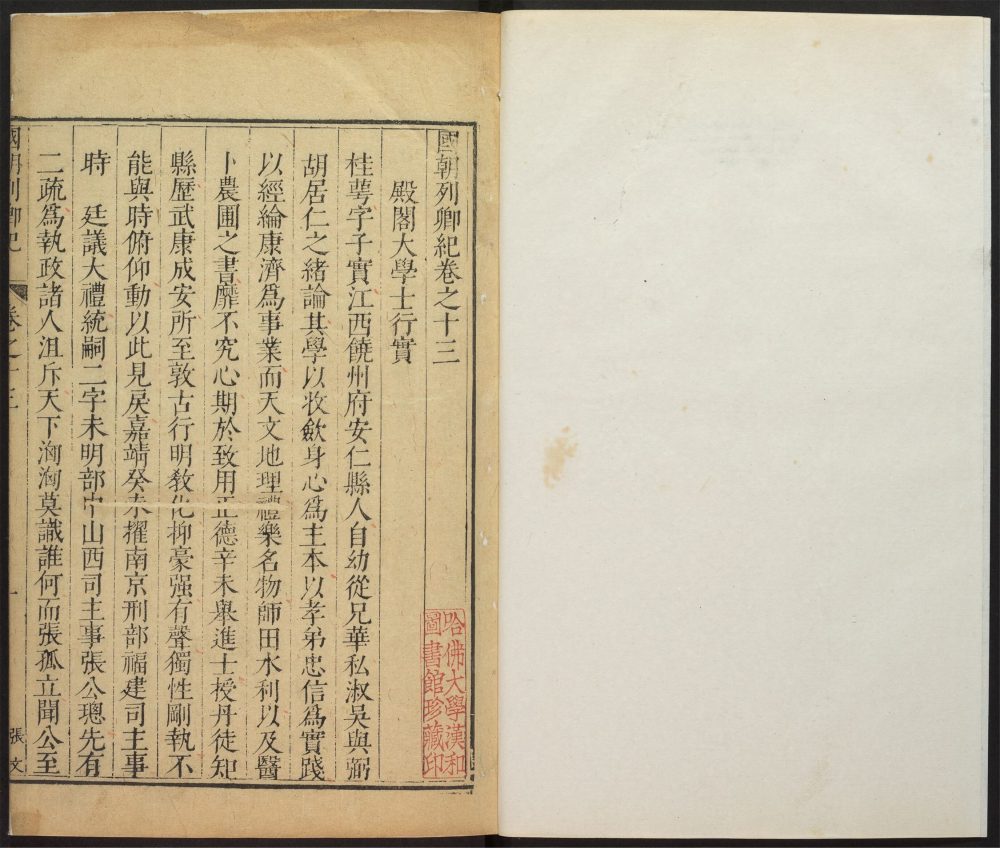 國朝列卿紀卷之十三
殿閣大學士行實
桂萼字子實江西饒州府安仁縣人自幼從兄華私淑吳與弼
胡居仁之緒論其學以收斂身心為主本以孝弟忠信為實踐
以經綸康濟為事業而天文地理禮樂名物師田水利以及醫
卜農圃之書靡不究心期於致用正德辛未舉進士授丹徒知
縣歷武康成安所至敦古行明教化抑豪强有聲獨性剛執不
能與時俯仰動以此見戾嘉靖癸未擢南京刑部福建司主事
時　廷議大禮統嗣二字未明部中山西司主事張公璁先有
二疏為執政諸人沮斥天下洶洶莫識誰何而張孤立聞公至
國朝列卿紀
卷之十三
一
張文
哈佛大學漢和
圖書館珍藏印